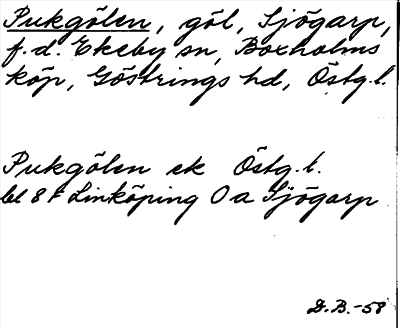 Pukgölen, göl, Sjögarp,
f.d. Ekeby sn, Boxholms
köp, Göstrings hd, Östg.l.
Pukgölen ek Östg.l.
bl 8 F Linköping O a Sjögarp
D.B.-58